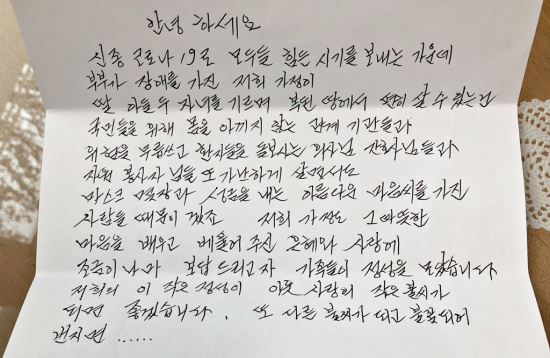 안녕 하세요
신종 코로나 19로 모두들 힘든 시기를 보내는 가운데
부부가 장애를 가진 저희 가정이
딸 아들 두 자녀를 기르며 복된 땅에서 편히 살 수 있는건
국민들을 위해 몸을 아끼지 않는 관계 기관들과
위험을 무릅쓰고 환자들을 돌보시는 의사님 간호사님들과
자원 봉사자 님들 또 가난하게 살면서도
마스크 몇장과 성금을 내는 아름다운 마음씨를 가진
사람들 때문이 겠죠 저희 가정도 그 따뜻한
마음을 배우고 베풀어 주신 은혜와 사랑에
조금이나마 보답 드리고자 가족들이 정성을 모았습니다
저희의 이 작은 정성이 이웃 사랑의 작은 불씨가
되면 좋겠습니다. 또 다른 불씨가 되고 불꽃되어
번지면 ......